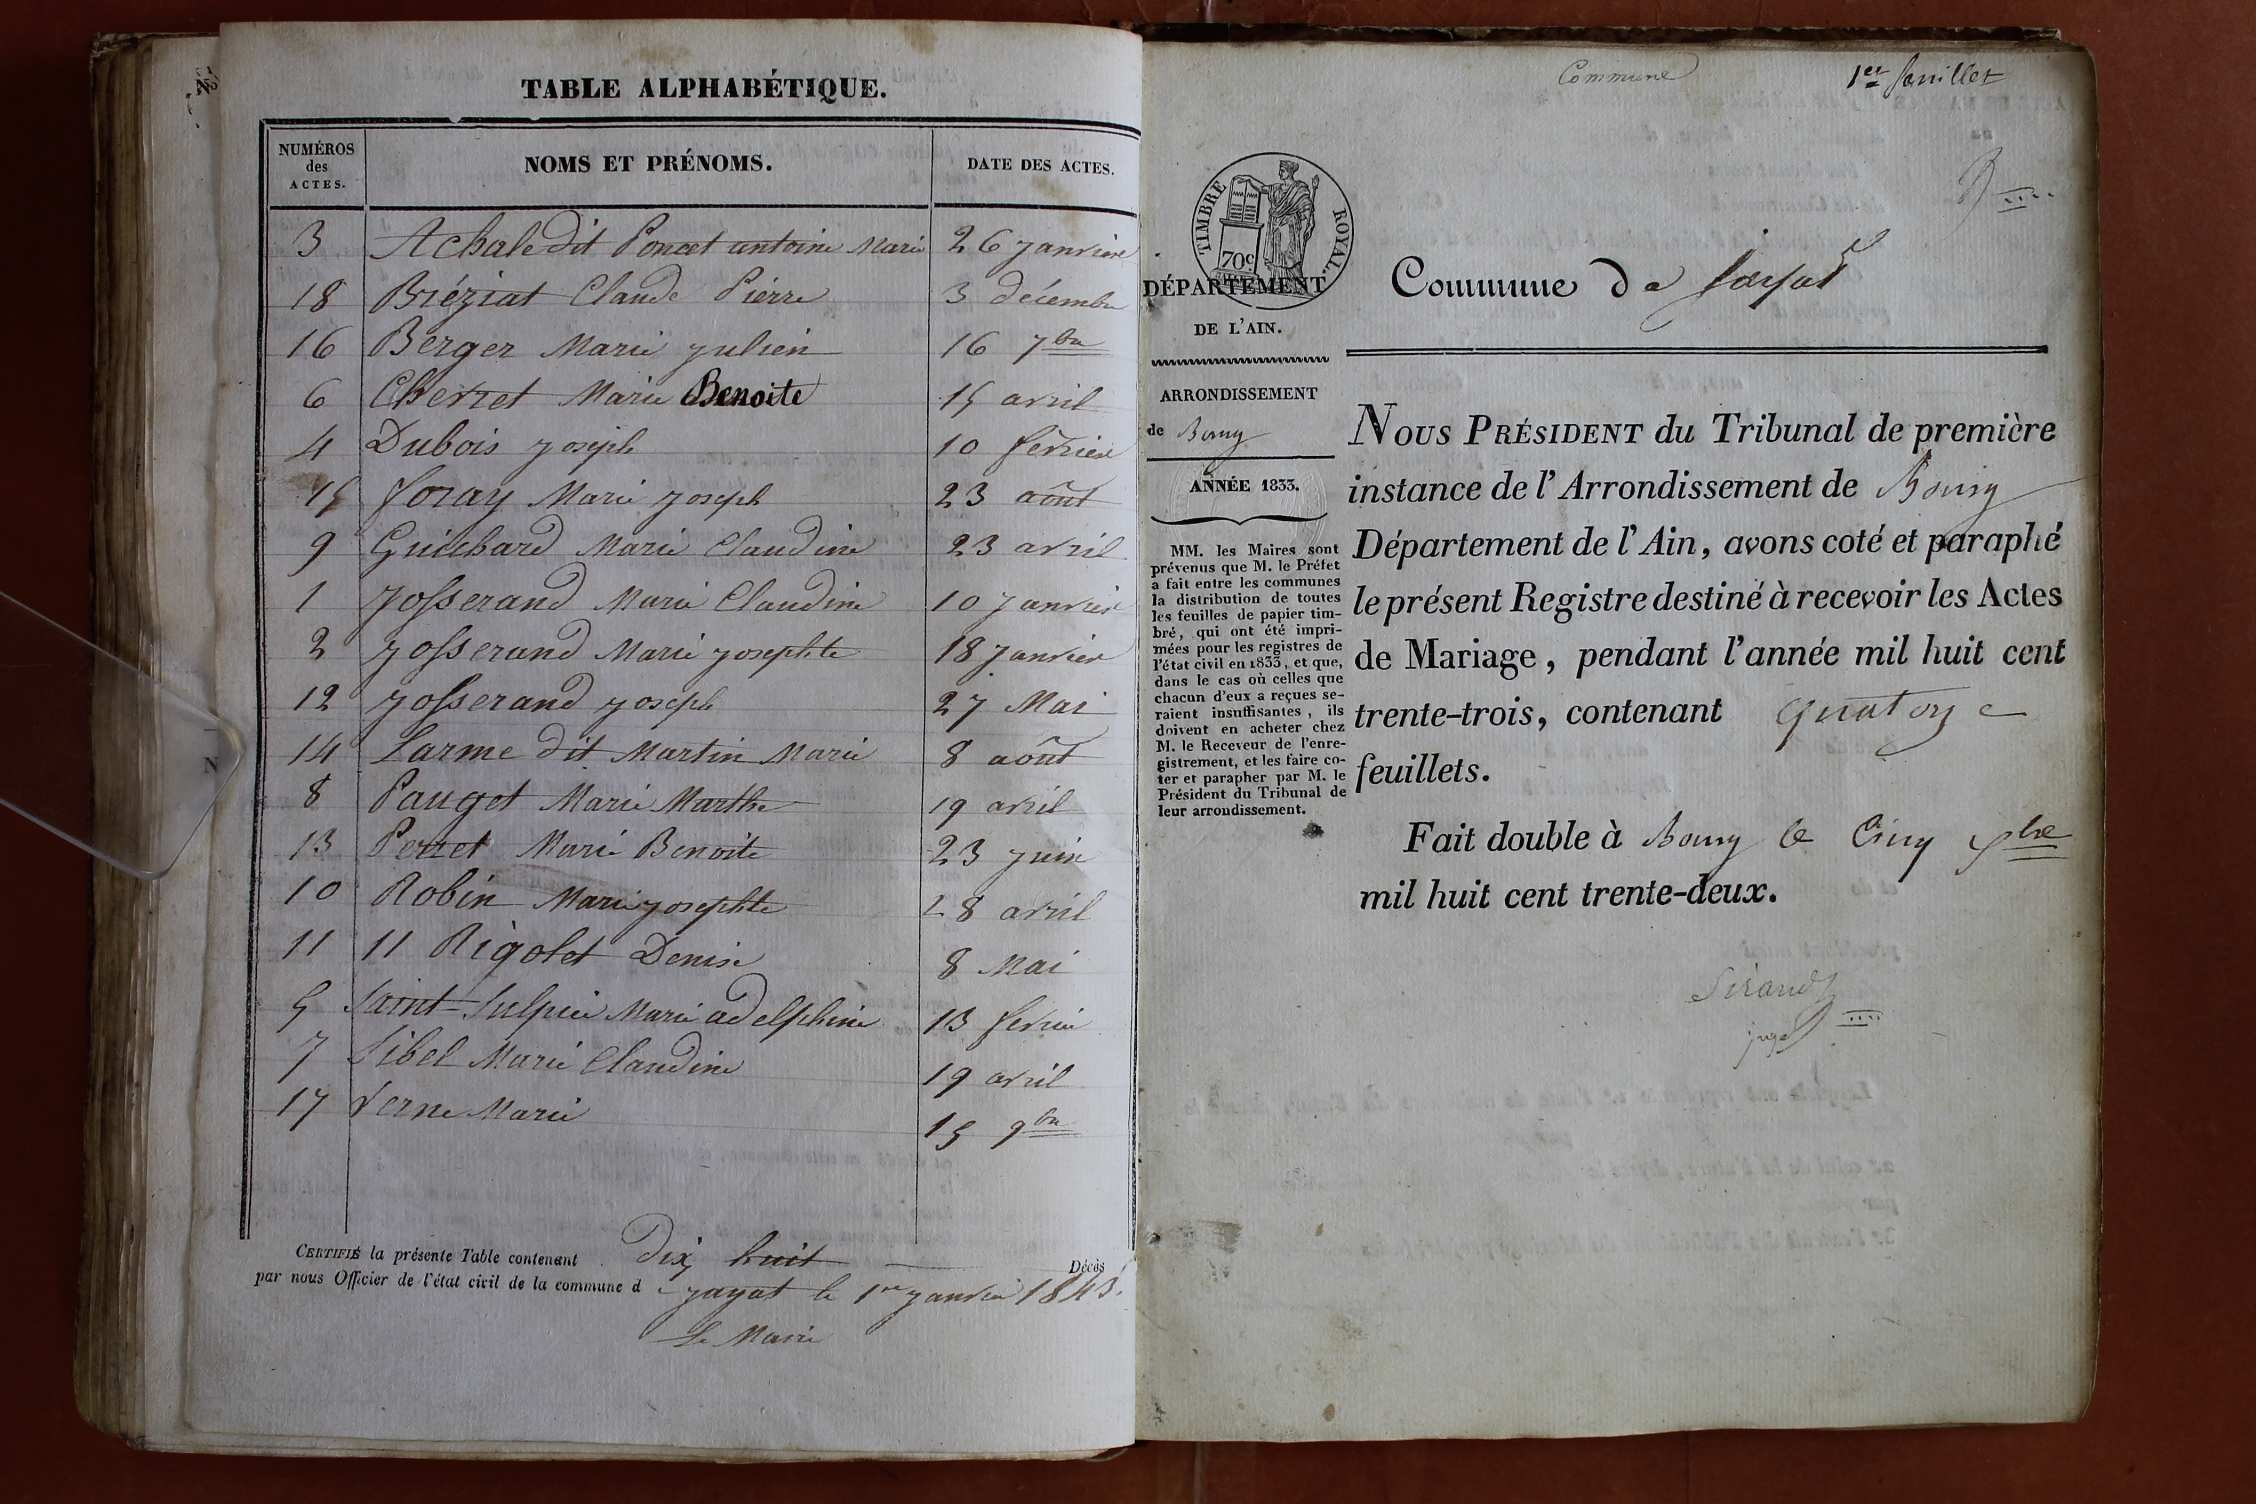 TABLE ALPHABÉTIQUE.
NUMÉROS
des
ACTES.
NOMS ET PRÉNOMS.
DATE DES ACTES.
3 Achale dit Poncet antoine Marie 26 janvier
18 Bréziat Claude Pierre 3 décembre
16 Berger Marie julien 16 7bre
6 Chervet Marie Benoite 15 avril
4 Dubois joseph 10 fevrier
15 foray Marie joseph 23 août
9 Guichard Marie Claudine 23 avril
1 josserand Marie Claudine 10 janvier
2 josserand Marie josephte 18 janvier
12 josserand joseph 27 Mai
14 Larme dit Martin Marie 8 août
8 Pauget Marie Marthe 19 avril
13 Perret Marie Benoite 23 juin
10 Robin Marie josephte 28 avril
11 11 Rigolet Denise 8 Mai
5 Saint-Sulpice Marie adelphine 13 fevrier
7 Sibel Marie Claudine 19 avril
17 Verne Marie 15 9bre
CERTIFIÉ la présente Table contenant dix huit Décès
par nous Officier de l'état civil de la commune de jayat le 1er janvier 1843.
Le Maire
Commune
1er feuillet
TIMBRE ROYAL.
70c
DÉPARTEMENT
DE L'AIN.
ARRONDISSEMENT
de Bourg
ANNÉE 1833.
MM. les Maires sont
prévenus que M. le Préfet
a fait entre les communes
la distribution de toutes
les feuilles de papier tim-
bré, qui ont été impri-
mées pour les registres de
l'état civil en 1833, et que,
dans le cas où celles que
chacun d'eux a reçues se-
raient insuffisantes, ils
doivent en acheter chez
M. le Receveur de l'enre-
gistrement, et les faire co-
ter et parapher par M. le
Président du Tribunal de
leur arrondissement.
Commune de Jayat
NOUS PRÉSIDENT du Tribunal de première
instance de l'Arrondissement de Bourg
Département de l'Ain, avons coté et paraphé
le présent Registre destiné à recevoir les Actes
de Mariage, pendant l'année mil huit cent
trente-trois, contenant quatorze
feuillets.
Fait double à Bourg le Cinq
mil huit cent trente-deux.
Sirand
juge